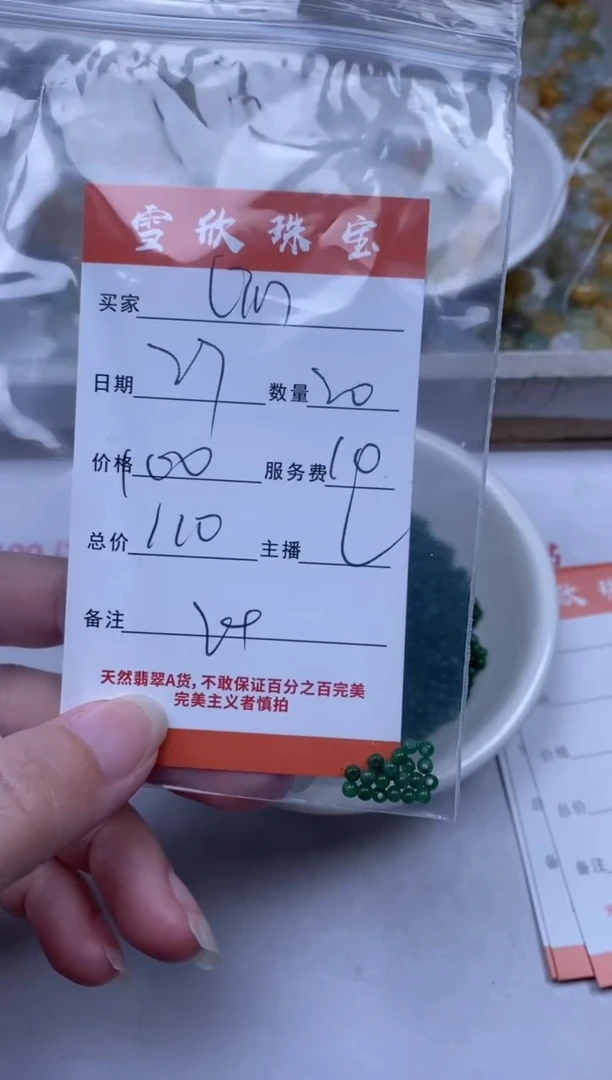 雪欣珠宝
买家
日期 27 数量 20
价格 100 服务费 10
总价 110 主播
备注
天然翡翠A货,不敢保证百分之百完美
完美主义者慎拍
价格
总价
备注